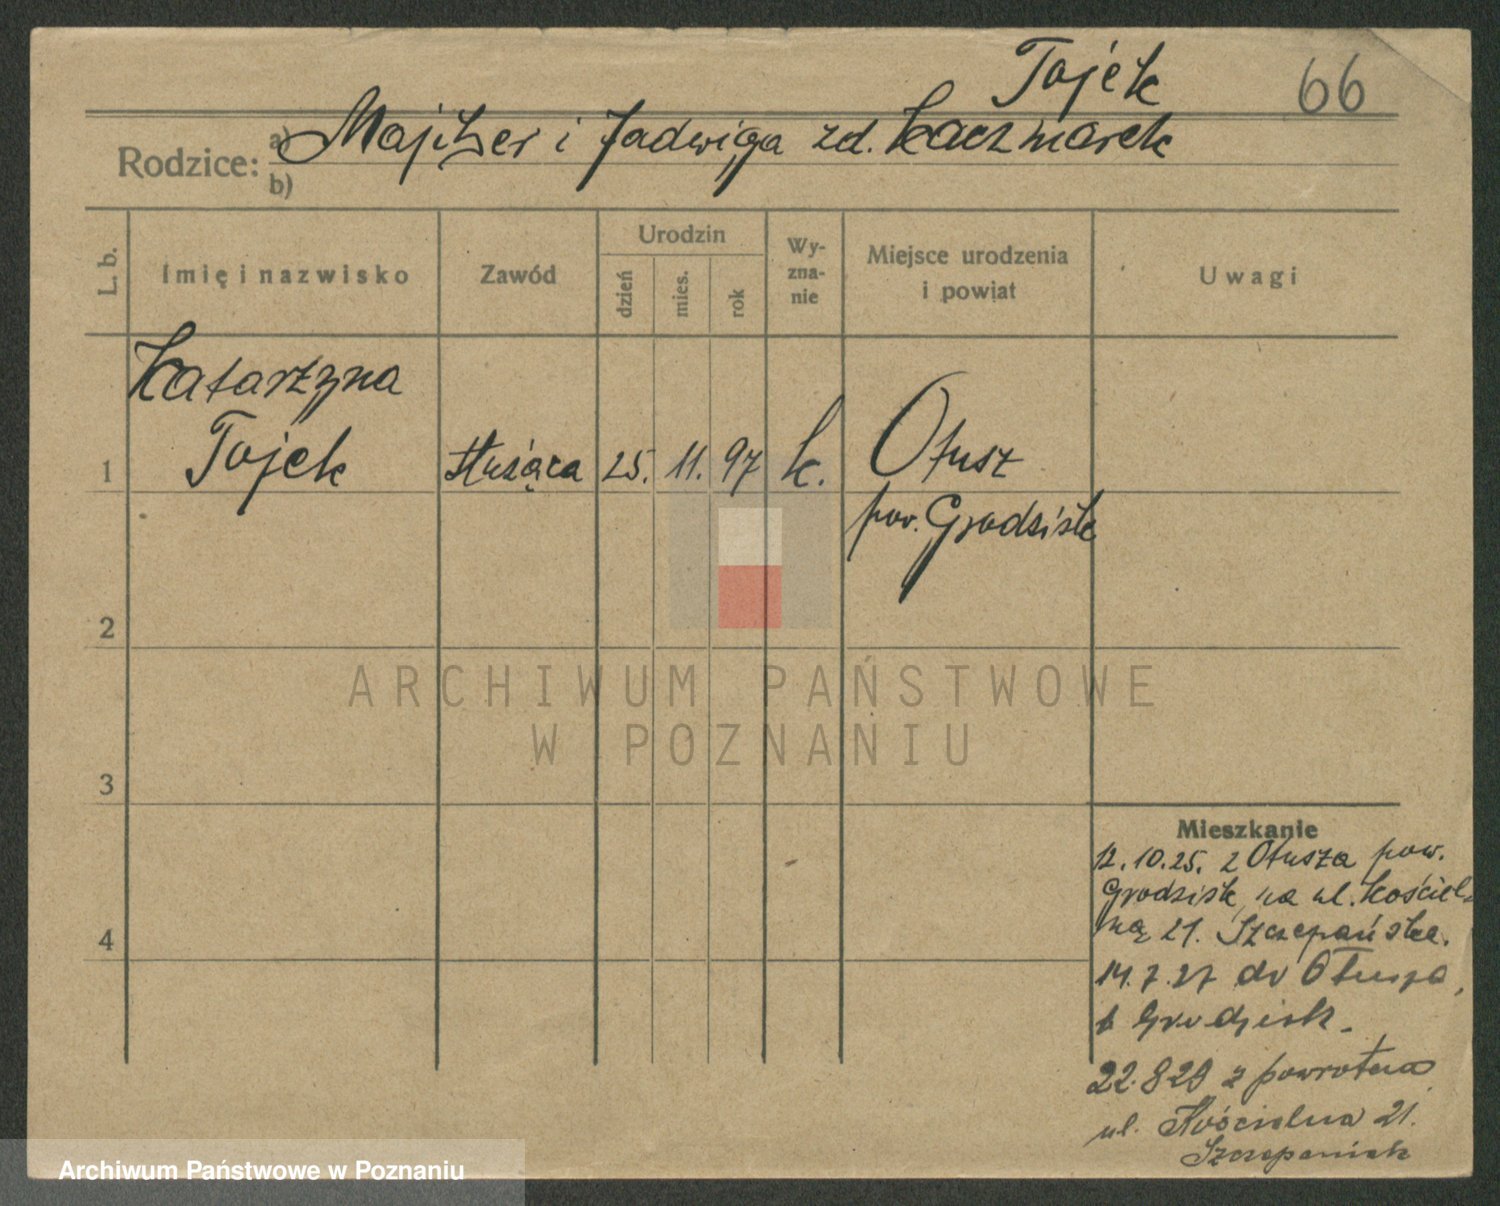 Tojek
66
Rodzice:
a) Majcher i Jadwiga zd. Kaczmarek
b)
L. b.
Imię i nazwisko
Zawód
Urodzin
dzień
mies.
rok
Wy-
zna-
nie
Miejsce urodzenia
i powiat
Uwagi
Katarzyna
1 Tojek służąca 25. 11. 97 k. Otusz
pow. Grodzisk
2
ARCHIWUM PAŃSTWOWE
W POZNANIU
3
Mieszkanie
12.10.25. z Otusza pow.
Grodzisk, na ul. Kościel-
ną 21. Szczepańska.
4
14.7.27 do Otusza,
Grodzisk.
22.8 29 z powrotem
ul. Kościelna 21.
Szczepaniak
Archiwum Państwowe w Poznaniu